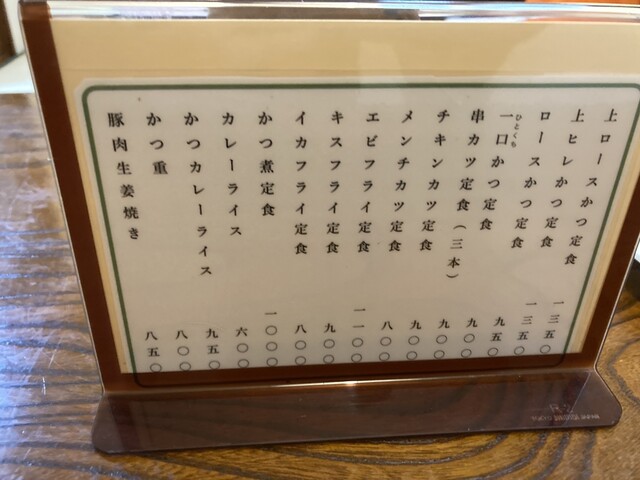 上ロースかつ定食 一三五〇
上ヒレかつ定食 一三五〇
ロースかつ定食 九五〇
一口かつ定食 九〇〇
ひとくち
串カツ定食(三本) 九〇〇
チキンカツ定食 九〇〇
メンチカツ定食 八〇〇
エビフライ定食 一一〇〇
キスフライ定食 九〇〇
イカフライ定食 八〇〇
かつ煮定食 一〇〇〇
カレーライス 六〇〇
かつカレーライス 九五〇
かつ重 八〇〇
豚肉生姜焼き 八五〇